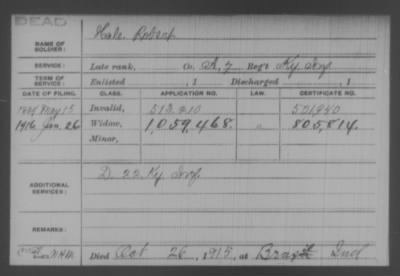 DEAD
NAME OF SOLDIER: Hale. Robert
SERVICE: Late rank, Co. A, 7 Reg't Ky Inf
TERM OF SERVICE: Enlisted , 1 Discharged , 1
DATE OF FILING. CLASS. APPLICATION NO. LAW. CERTIFICATE NO.
May 15 Invalid, 501,940
1916 Jan. 26 Widow, 1,059,468. " 805,814.
Minor,
ADDITIONAL SERVICES: D. 22 Ky Inf.
REMARKS:
Died Oct 26, 1915, at Ind